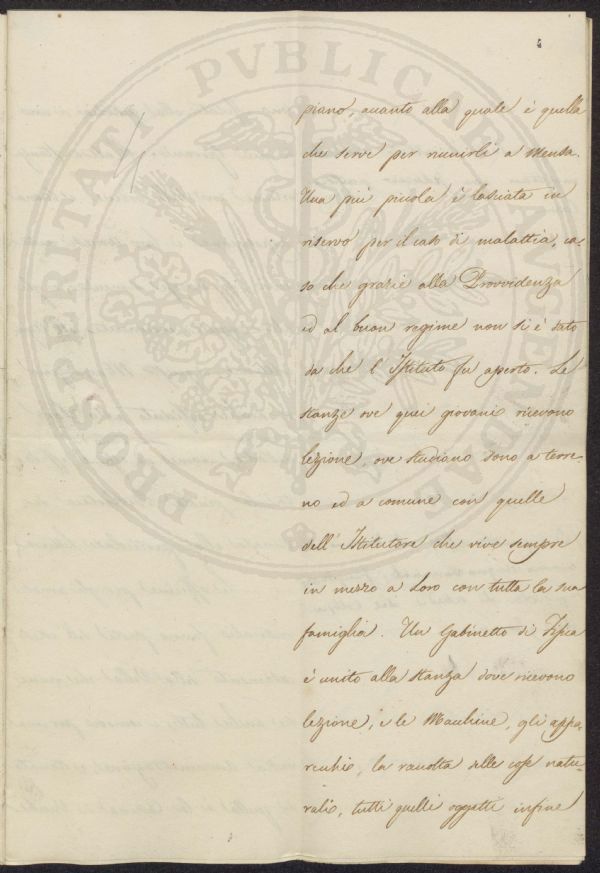 4
piano, accanto alla quale è quella
che serve per riunirli a Mensa.
Una più piccola è lasciata in
riservo per il caso di malattia, ca-
so che grazie alla Provvidenza
ed al buon regime non si è dato
da che l'Istituto fu aperto. Le
stanze ove quei giovani ricevono
lezione, ove studiano sono a terre-
no ed a comune con quelle
dell'Istitutore che vive sempre
in mezzo a Loro con tutta la sua
famiglia. Un Gabinetto di Fisica
è unito alla stanza dove ricevono
lezione, e le Macchine, gli appa-
recchi, la raccolta delle cose natu-
rali, tutti quelli oggetti infine
PROSPERITATI PVBLICAE AVGENDAE